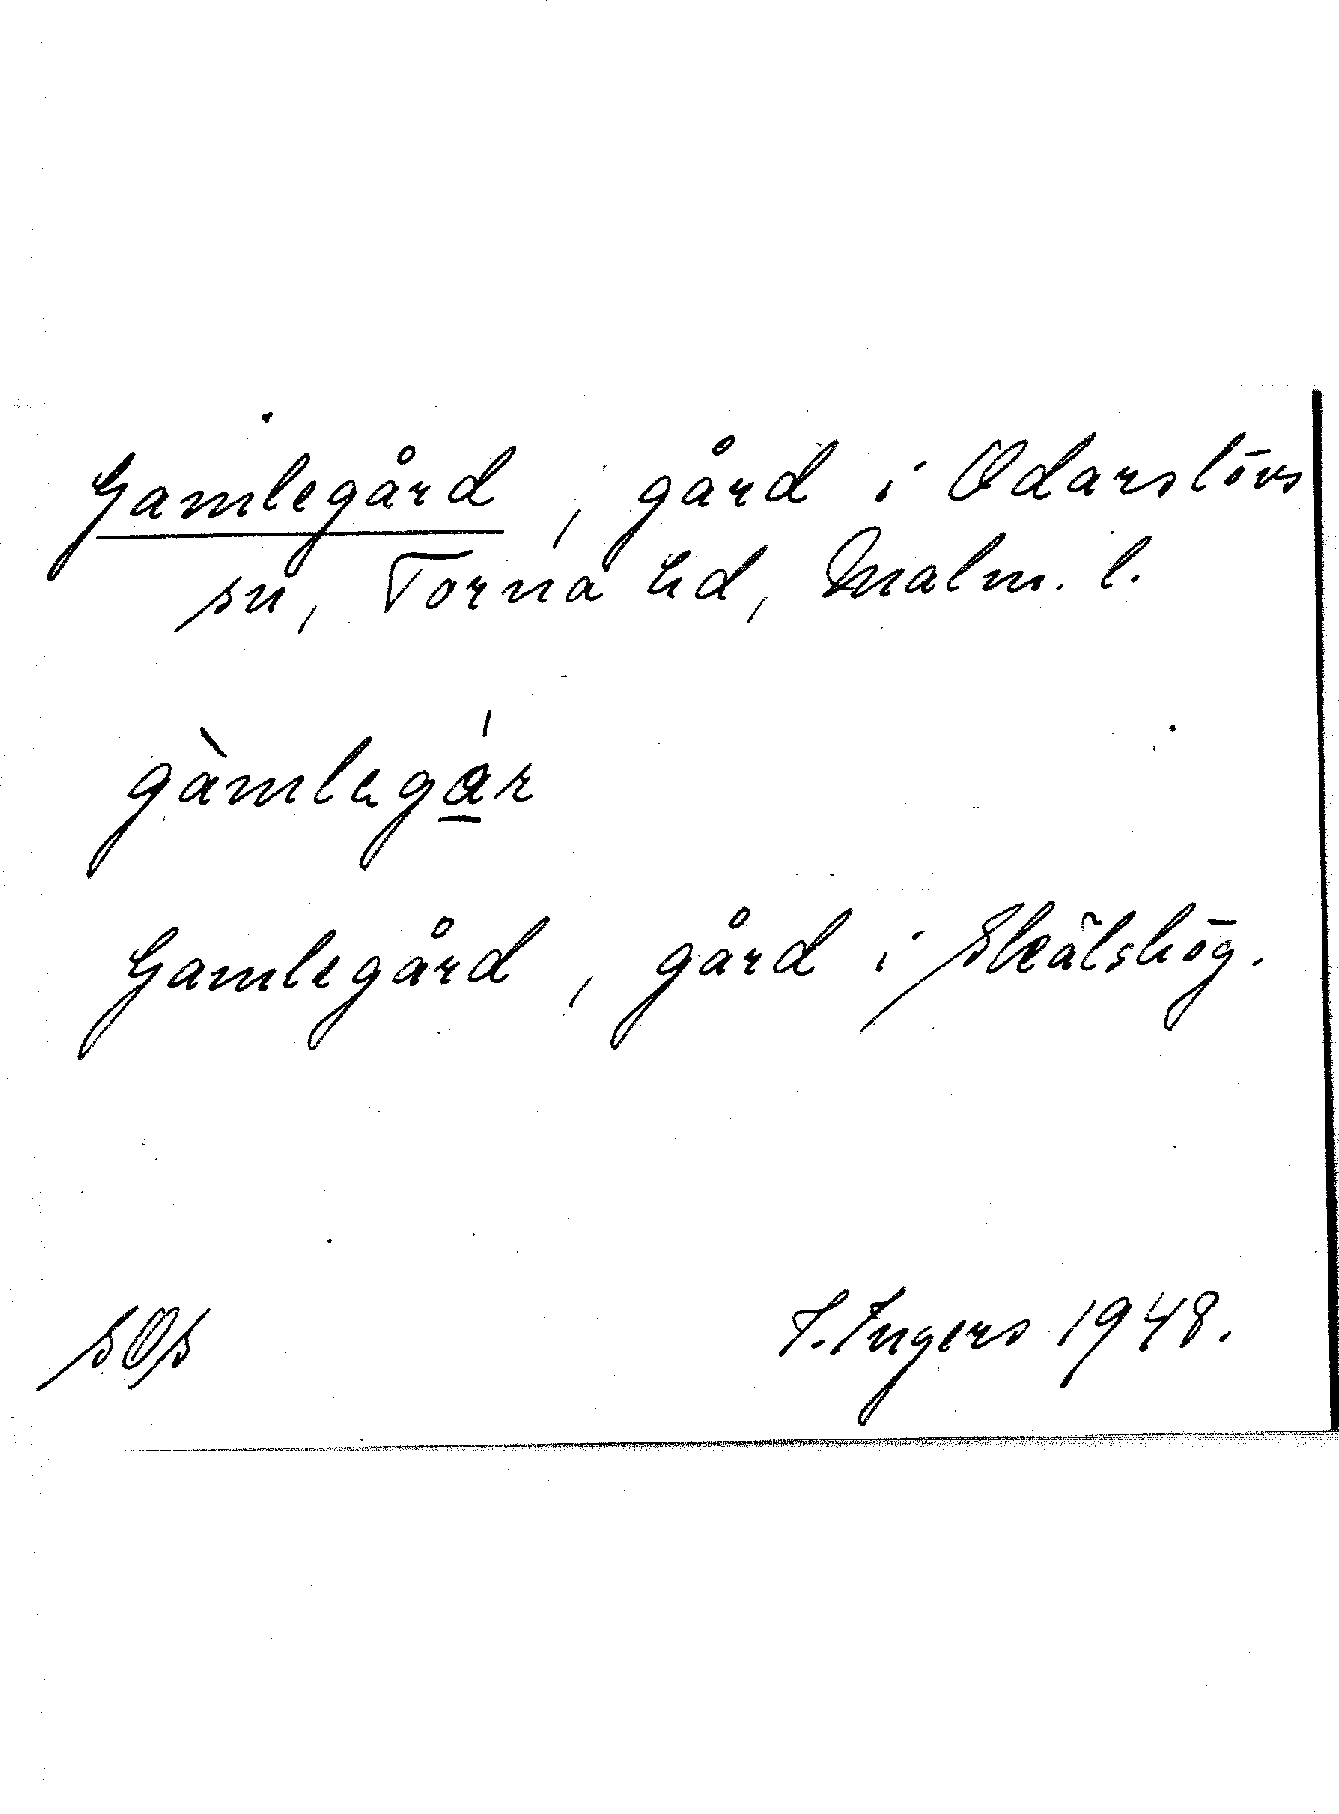 Gamlegård, gård i Odarslövs
sn, Torna hd, Malm. l.
gàmlegár
Gamlegård, gård i Skälshög.
sOs
I. Ingers 1948.